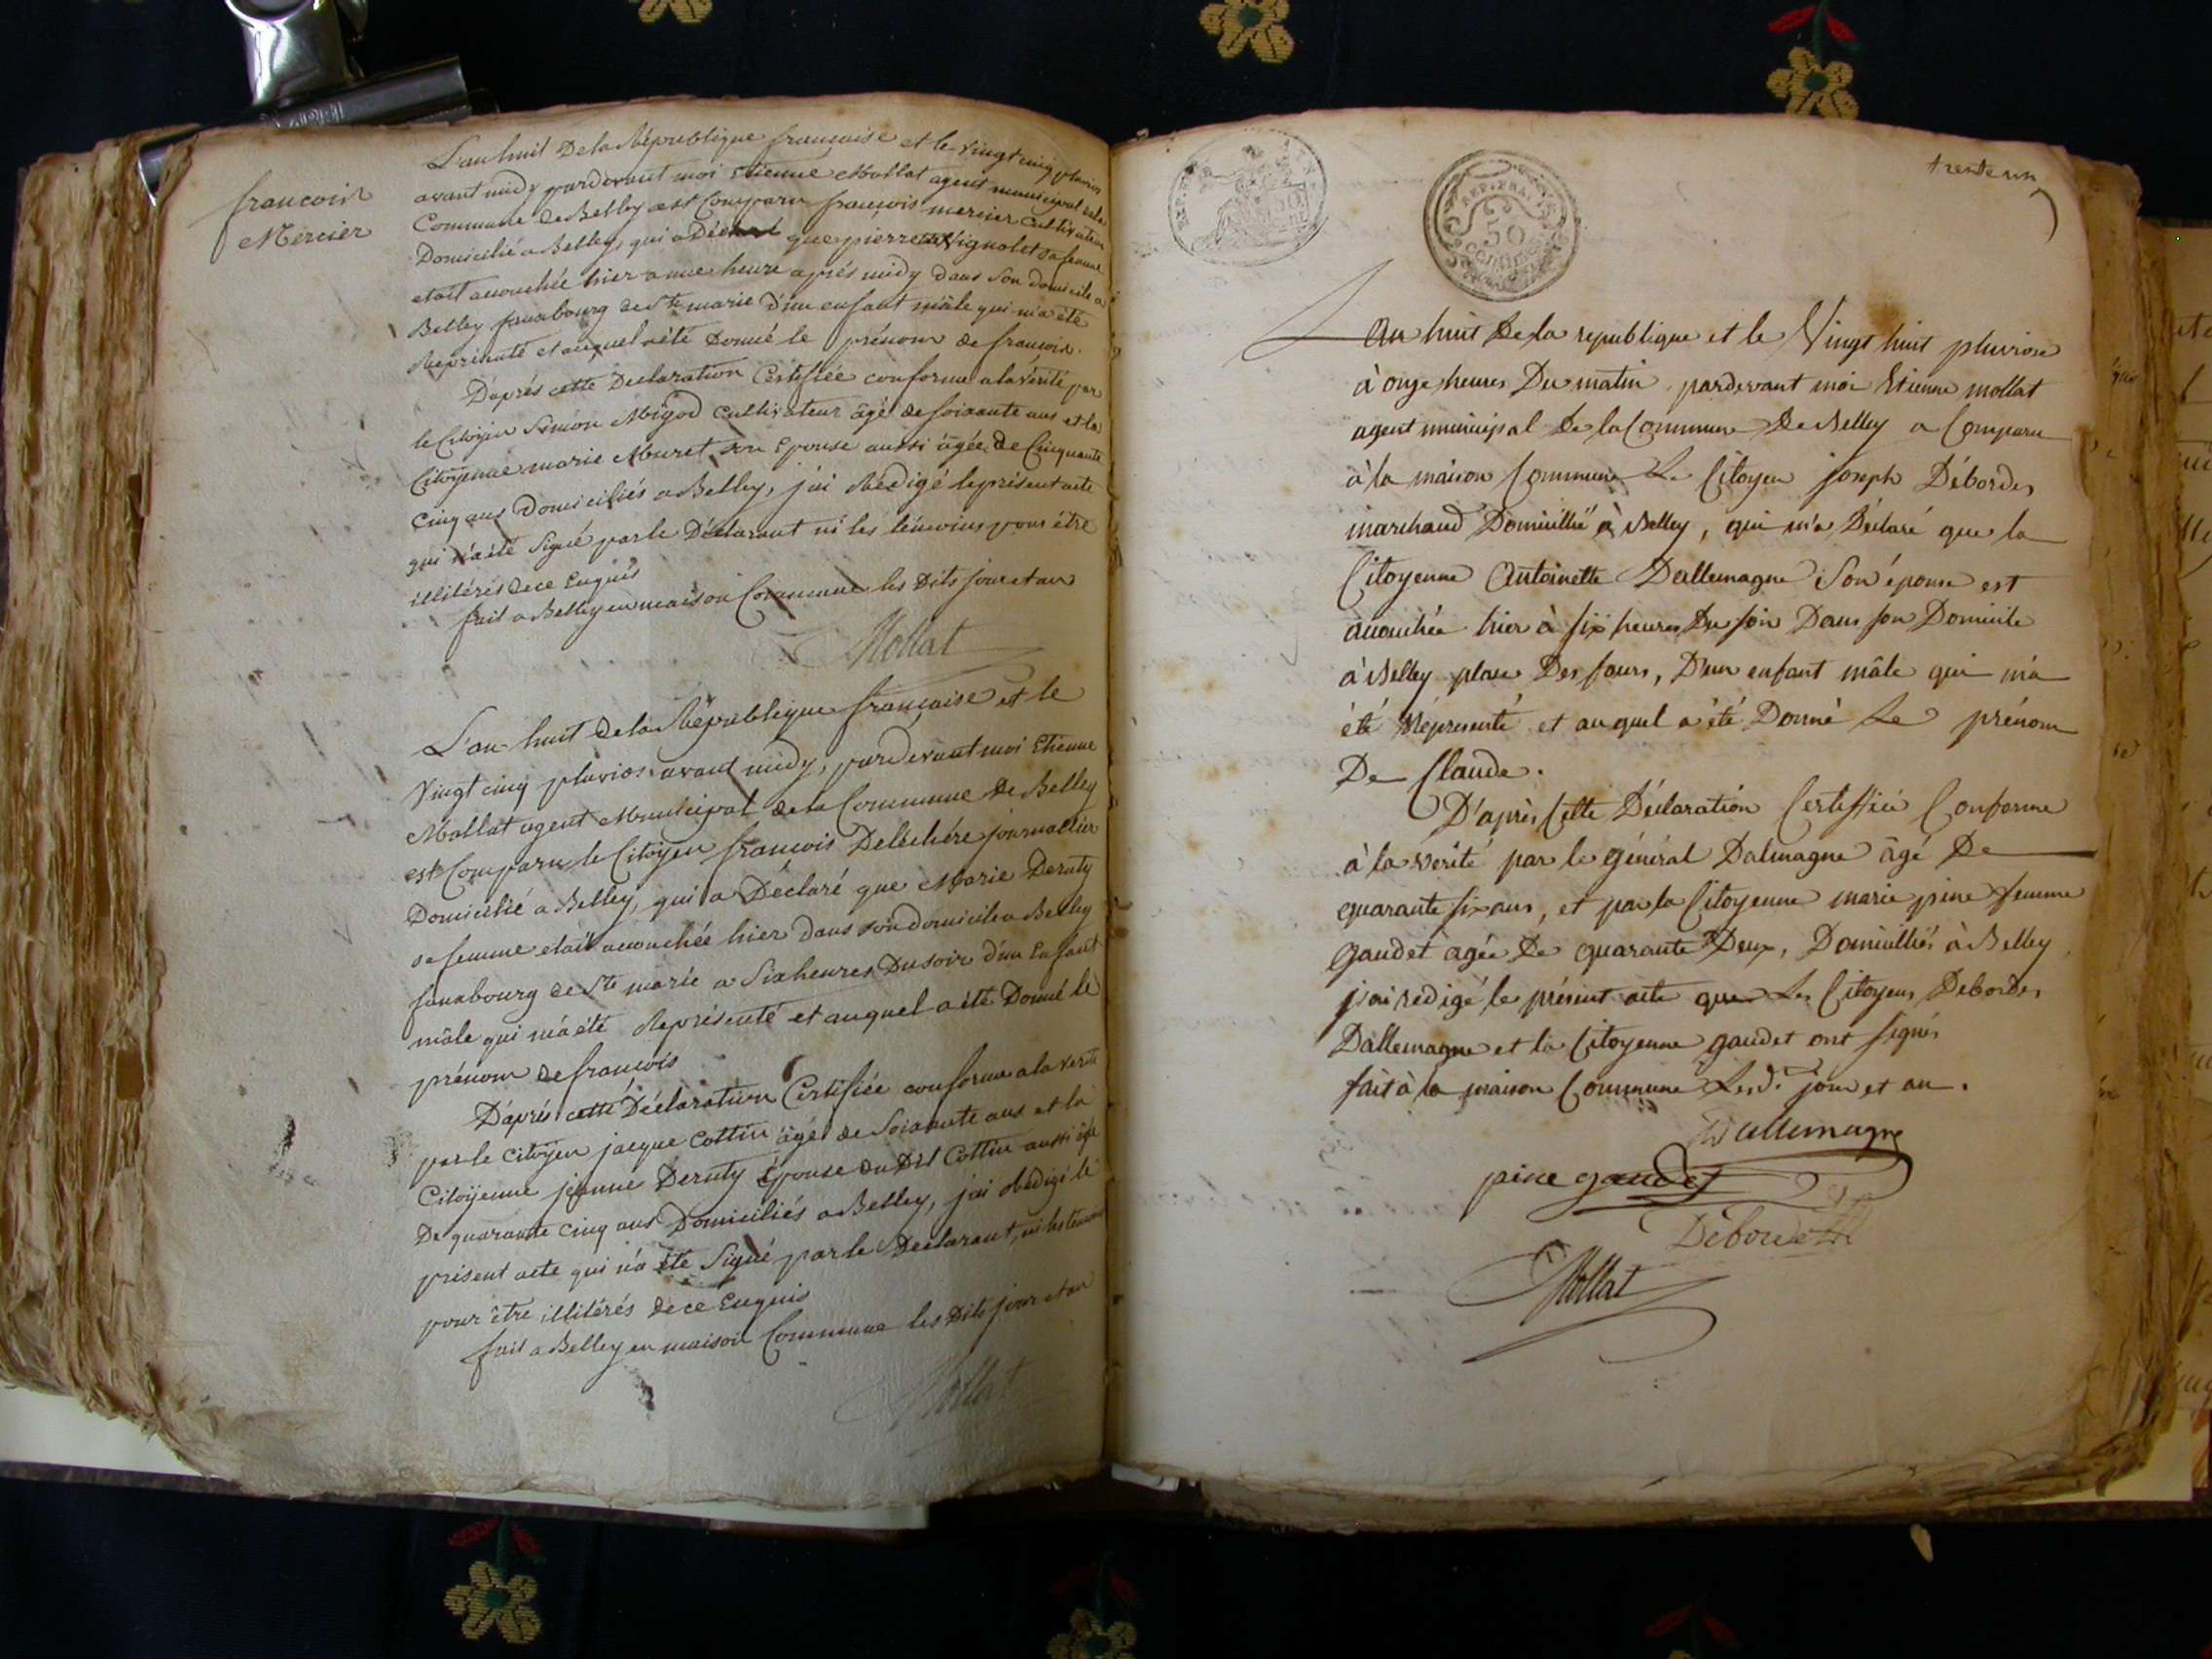 françois
Mercier
L'an huit De la République française et le vingt cinq pluvios
avant midy pardevant moi Etienne Mollat agent municipal de la
Commune de Belley est Comparu françois mercier Cultivateur
Domicilié a Belley, qui a Déclaré que pierrette Vignolet sa femme
etait accouchée hier a une heure après midy dans son domicile a
Belley fauxbourg de Ste marie d'un enfant mâle qui m'a été
Représenté et auquel a été Donné le prénom de françois.
D'après cette Déclaration Certifiée conforme a la vérité par
le Citoyen Simon Migod Cultivateur âgé de soixante ans et la
Citoyenne marie Muret son Epouse aussi âgée de Cinquante
Cinq ans Domiciliés a Belley, j'ai Rédigé le présent acte
qui n'a été Signé par le Déclarant ni les témoins pour être
illitérés de ce Enquis
fait a Belley en maison Commune les Dits jour et an
Mollat
L'an huit de la République française et le
Vingt cinq pluviose avant midy, pardevant moi Etienne
Mollat agent Municipal de la Commune de Belley
est Comparu le Citoyen françois Deléchère journallier
Domicilié a Belley, qui a Déclaré que Marie Deruty
sa femme etait accouchée hier dans son domicile a Belley
fauxbourg de Ste marie a Six heures Du soir d'un Enfant
mâle qui m'a été Représenté et auquel a été Donné le
prénom de françois
D'après cette Déclaration Certifiée conforme a la verité
par le Citoyen jacque Cottin âgé de Soixante ans et la
Citoyenne jeanne Deruty Épouse du Dit Cottin aussi âgé
De quarante cinq ans Domiciliés a Belley, j'ai Rédigé le
présent acte qui n'a été Signé par le Déclarant, ni les temoins
pour être illitérés de ce Enquis
fait a Belley en maison Commune les Dits jour et an
Mollat
REP. FRA.
50
trente un
L'an huit De la republique et le Vingt huit pluviose
à onze heures Du matin pardevant moi Etienne mollat
agent municipal De la Commune De Belley a Comparu
à la maison Commune Le Citoyen joseph Débordes
marchand Domicillié à Belley, qui m'a Déclaré que la
Citoyenne Antoinette Dallemagne Son épouse est
accouchée hier à six heures Du soir Dans son Domicile
à Belley place Des fours, D'un enfant mâle qui m'a
été Représenté et auquel a été Donné Le prénom
De Claude.
D'après Cette Déclaration Certiffiée Conforme
à la verité par le général Dalmagne âgé De
quarante six ans, et par la Citoyenne marie pine femme
gaudet agée De quarante Deux, Domicilliés à Belley
j'ai redigé le présent acte que Les Citoyens Debordes
Dallemagne et la Citoyenne gaudet ont signés
fait à la maison Commune Lesd. jour et an.
Dallemagne
pine gaudet
Débordes
Mollat